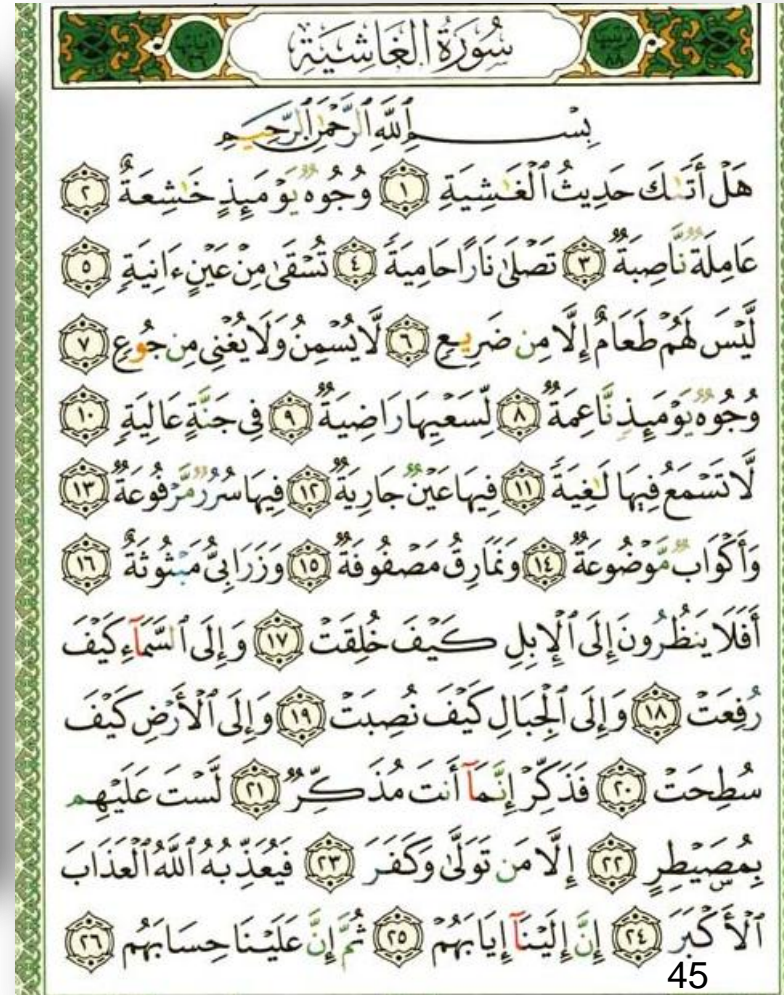 ترتيبها ٨٨ سُورَةُ الغَاشِيَةِ آياتها ٢٦
بِسْمِ ٱللَّهِ ٱلرَّحْمَٰنِ ٱلرَّحِيمِ
هَلْ أَتَىٰكَ حَدِيثُ ٱلْغَٰشِيَةِ ١ وُجُوهٌ يَوْمَئِذٍ خَٰشِعَةٌ ٢
عَامِلَةٌ نَّاصِبَةٌ ٣ تَصْلَىٰ نَارًا حَامِيَةً ٤ تُسْقَىٰ مِنْ عَيْنٍ ءَانِيَةٍ ٥
لَّيْسَ لَهُمْ طَعَامٌ إِلَّا مِن ضَرِيعٍ ٦ لَّا يُسْمِنُ وَلَا يُغْنِى مِن جُوعٍ ٧
وُجُوهٌ يَوْمَئِذٍ نَّاعِمَةٌ ٨ لِّسَعْيِهَا رَاضِيَةٌ ٩ فِى جَنَّةٍ عَالِيَةٍ ١٠
لَّا تَسْمَعُ فِيهَا لَٰغِيَةً ١١ فِيهَا عَيْنٌ جَارِيَةٌ ١٢ فِيهَا سُرُرٌ مَّرْفُوعَةٌ ١٣
وَأَكْوَابٌ مَّوْضُوعَةٌ ١٤ وَنَمَارِقُ مَصْفُوفَةٌ ١٥ وَزَرَابِىُّ مَبْثُوثَةٌ ١٦
أَفَلَا يَنظُرُونَ إِلَى ٱلْإِبِلِ كَيْفَ خُلِقَتْ ١٧ وَإِلَى ٱلسَّمَآءِ كَيْفَ
رُفِعَتْ ١٨ وَإِلَى ٱلْجِبَالِ كَيْفَ نُصِبَتْ ١٩ وَإِلَى ٱلْأَرْضِ كَيْفَ
سُطِحَتْ ٢٠ فَذَكِّرْ إِنَّمَآ أَنتَ مُذَكِّرٌ ٢١ لَّسْتَ عَلَيْهِم
بِمُصَۜيْطِرٍ ٢٢ إِلَّا مَن تَوَلَّىٰ وَكَفَرَ ٢٣ فَيُعَذِّبُهُ ٱللَّهُ ٱلْعَذَابَ
ٱلْأَكْبَرَ ٢٤ إِنَّ إِلَيْنَآ إِيَابَهُمْ ٢٥ ثُمَّ إِنَّ عَلَيْنَا حِسَابَهُم ٢٦
45